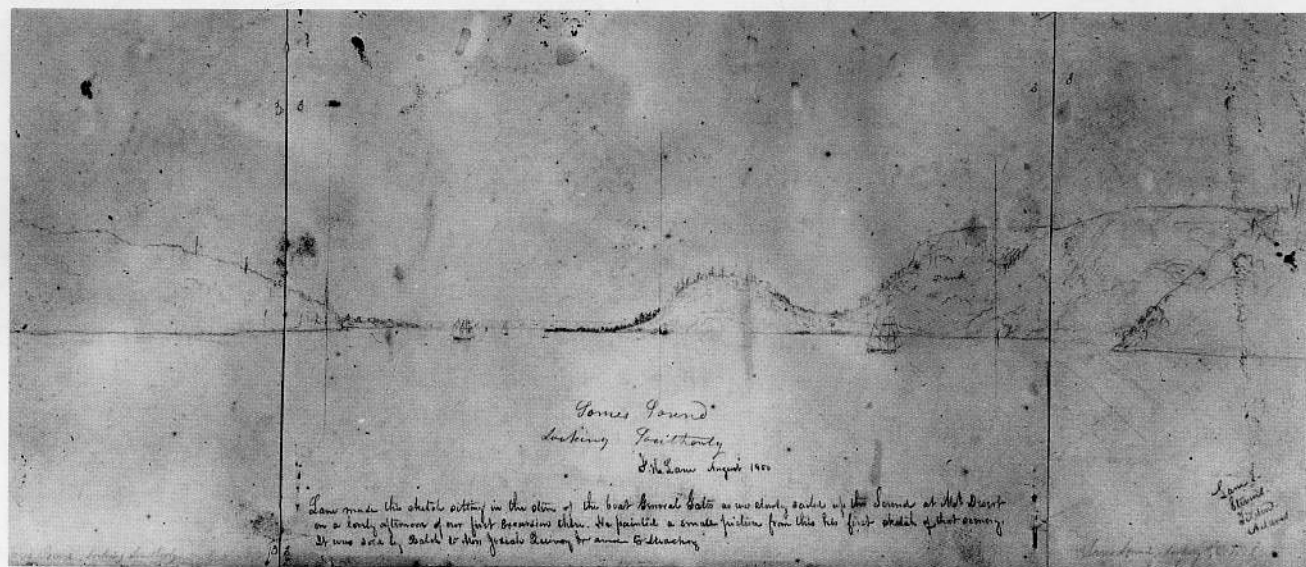 Dark
Somes Sound
Looking Southerly
F. H. Lane August 1850
Lane made this sketch sitting in the stern of the boat General Gates as we slowly sailed up this Sound at Mt Desert
on a lovely afternoon of our first Excursion there. He painted a small picture from this his first sketch of that scenery.
It was sold by Balch to Hon Josiah Quincy
Lane &
Stevens